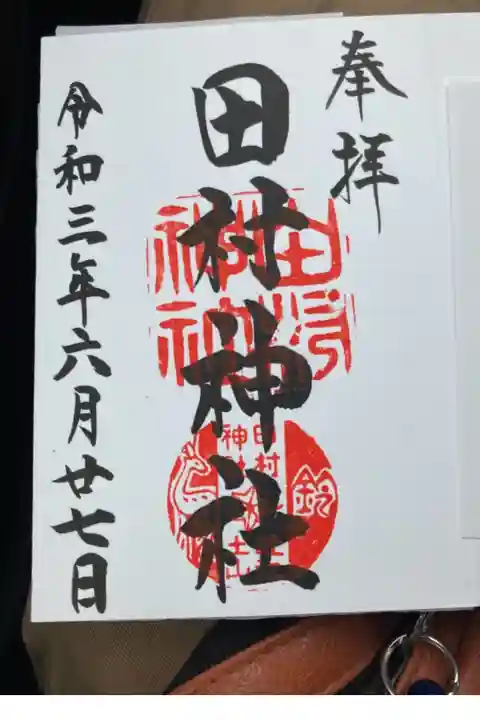 奉拝
田村神社
令和三年六月廿七日
田村
神社
鈴